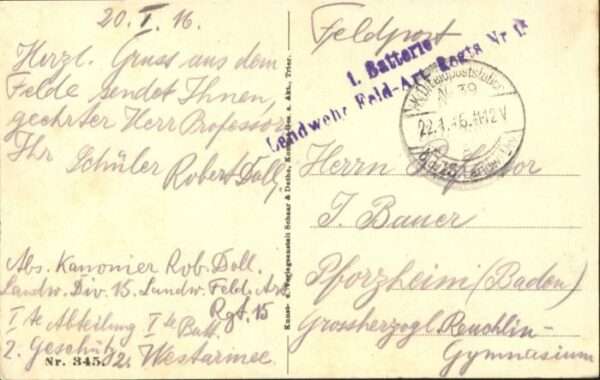 20. I. 16.
Herzl. Gruss aus dem
Felde sendet Ihnen,
geehrter Herr Professor
Ihr Schüler
Robert Doll.
Abs. Kanonier Rob. Doll.
Landw. Div. 15. Landw. Feld. Art.
Rgt. 15
I te Abteilung I te Batt.
2. Geschütz Westarmee.
Nr. 345.
Kunst- u. Verlagsanstalt Schaar & Dathe, Komm.-Ges. a. Akt., Trier.
Feldpost
1. Batterie
Landwehr Feld-Art. Regts Nr
Nr. 39
22.1.16.11-12V
Herrn Professor
J. Bauer
Pforzheim (Baden)
Grossherzogl. Reuchlin-
Gymnasium